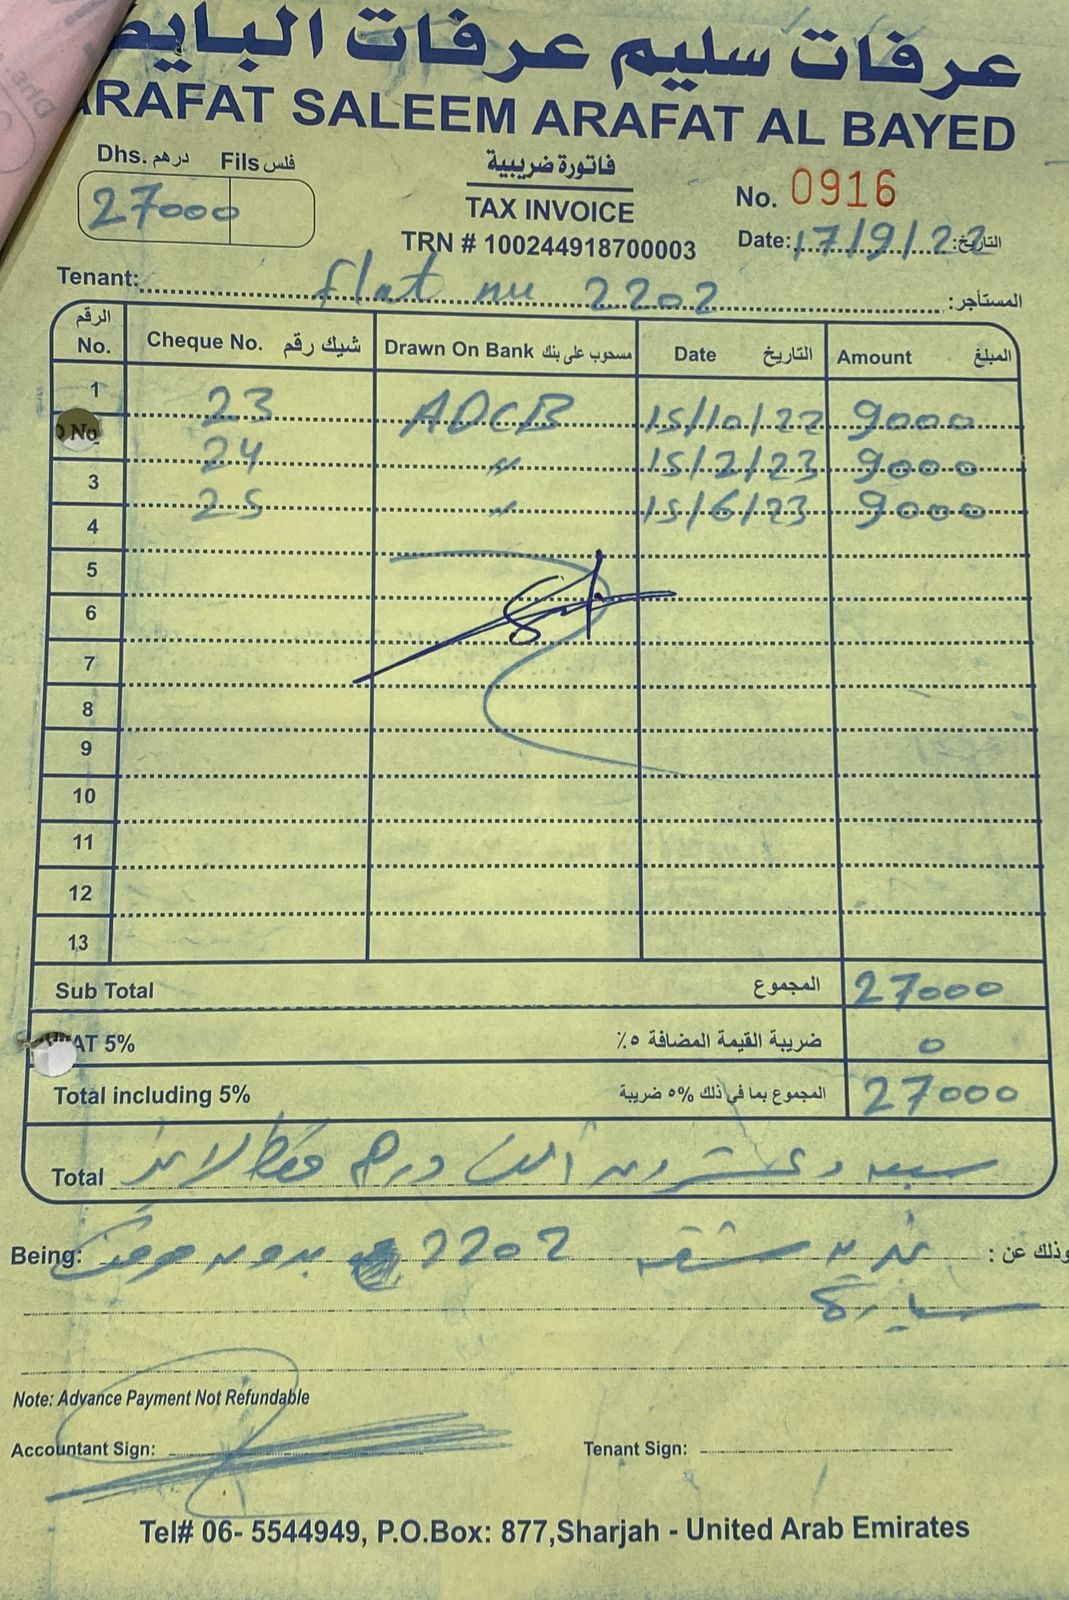 عرفات سليم عرفات البايض
ARAFAT SALEEM ARAFAT AL BAYED
Dhs. درهم Fils فلس
27000
فاتورة ضريبية
TAX INVOICE
TRN # 100244918700003
No. 0916
Date: 17/9/22 التاريخ:
Tenant: flat nu 2202 المستأجر:
الرقم No. Cheque No. شيك رقم Drawn On Bank مسحوب على بنك Date التاريخ Amount المبلغ
1 23 ADCB 15/10/22 9000
No 24 〃 15/2/23 9000
3 25 〃 15/6/23 9000
4
5
6
7
8
9
10
11
12
13
Sub Total المجموع 27000
VAT 5% ضريبة القيمة المضافة ٥٪ 0
Total including 5% المجموع بما في ذلك ٥% ضريبة 27000
Total سبعه وعشرون ألف درهم فقط لا غير
Being: شقه 2202 بدون موقف وذلك عن :
سيارة
Note: Advance Payment Not Refundable
Accountant Sign: Tenant Sign:
Tel# 06- 5544949, P.O.Box: 877,Sharjah - United Arab Emirates